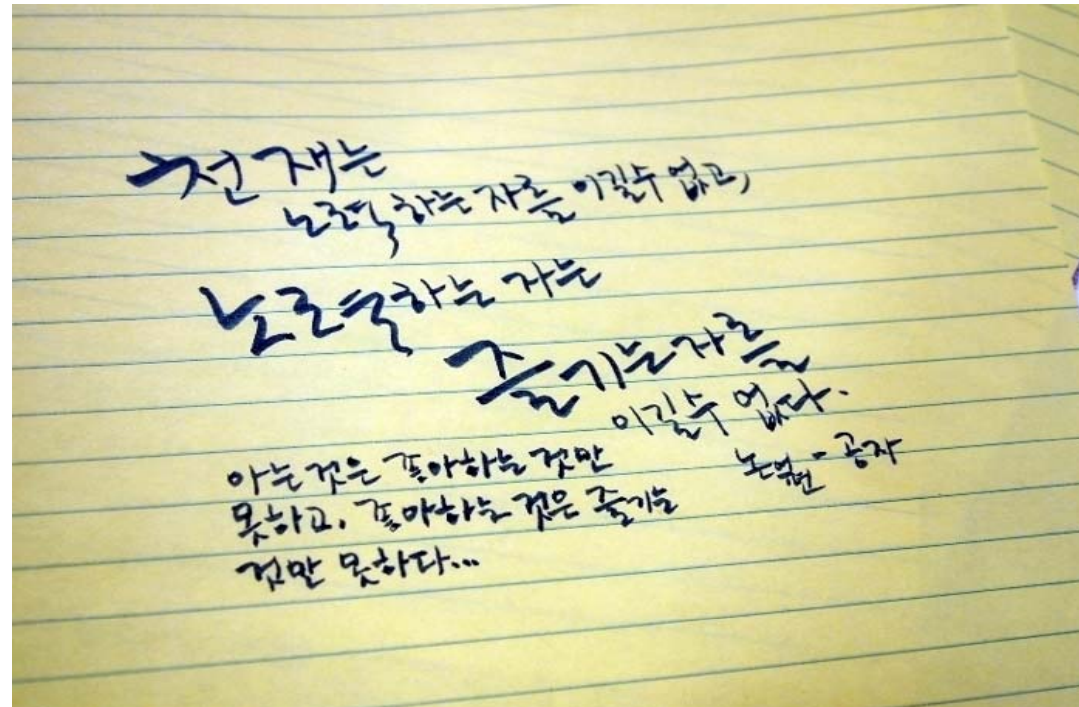 천재는
노력하는 자를 이길수 없고,
노력하는 자는
즐기는 자를
이길수 없다.
논어 - 공자
아는 것은 좋아하는 것만
못하고, 좋아하는 것은 즐기는
것만 못하다...